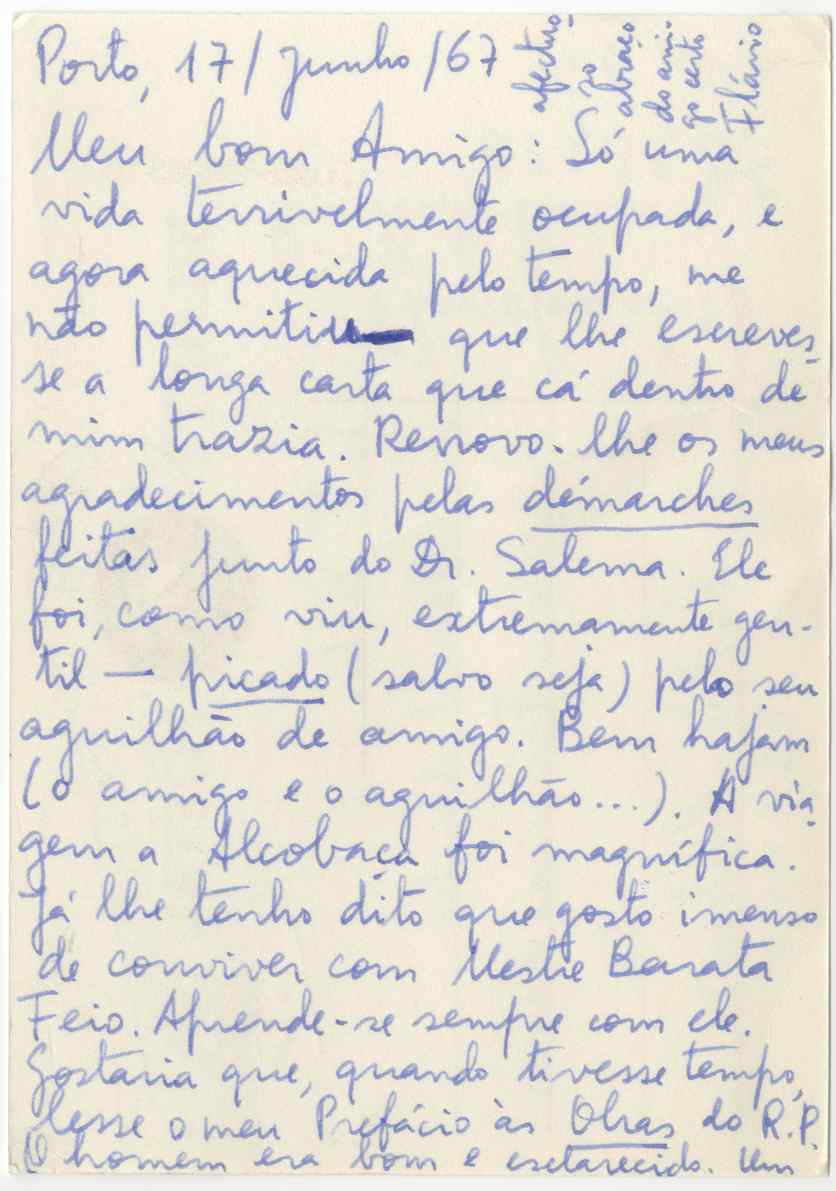 Porto, 17/junho/67
Meu bom Amigo: Só uma
vida terrivelmente ocupada, e
agora aquecida pelo tempo, me
não permitiu que lhe escreves-
se a longa carta que cá dentro de
mim trazia. Renovo-lhe os meus
agradecimentos pelas démarches
feitas junto do Dr. Salema. Ele
foi, como viu, extremamente gen-
til — picado (salvo seja) pelo seu
aguilhão de amigo. Bem hajam
(o amigo e o aguilhão...). A via-
gem a Alcobaça foi magnífica.
Já lhe tenho dito que gosto imenso
de conviver com Mestre Barata
Feio. Aprende-se sempre com ele.
Gostaria que, quando tivesse tempo,
lesse o meu Prefácio às Obras do R.P.
O homem era bom e esclarecido. Um
afectuo-
so
abraço
do ami-
go certo
Flávio